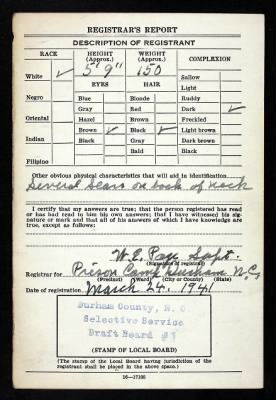 REGISTRAR'S REPORT
DESCRIPTION OF REGISTRANT
RACE HEIGHT (Approx.) WEIGHT (Approx.) COMPLEXION
White ✓ 5' 9" 150 Sallow
EYES HAIR Light
Negro Blue Blonde Ruddy
Gray Red Dark ✓
Oriental Hazel Brown Freckled
Brown ✓ Black ✓ Light brown
Indian Black Gray Dark brown
Bald Black
Filipino
Other obvious physical characteristics that will aid in identification
Several Scars on back of neck
I certify that my answers are true; that the person registered has read
or has had read to him his own answers; that I have witnessed his sig-
nature or mark and that all of his answers of which I have knowledge are
true, except as follows:
W. E. Page Supt.
(Signature of registrar)
Registrar for Prison Camp Durham N. C.
(Precinct) (Ward) (City or County) (State)
Date of registration March 24. 1941
Durham County, N. C.
Selective Service
Draft Board #1
(STAMP OF LOCAL BOARD)
(The stamp of the Local Board having jurisdiction of the
registrant shall be placed in the above space.)
16—17105